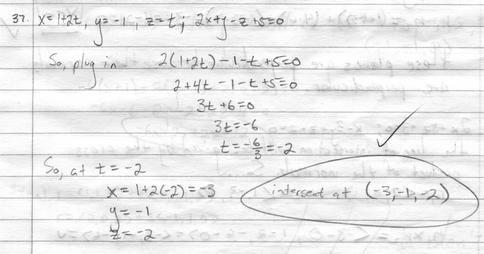 37. x=1+2t, y=-1, z=t; 2x+y-z+5=0
So, plug in 2(1+2t)-1-t+5=0
2+4t-1-t+5=0
3t+6=0
3t=-6
t=-6/3=-2
So, at t=-2
x=1+2(-2)=-3
intersect at (-3,-1,-2)
y=-1
z=-2